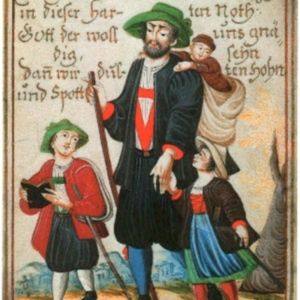 in dieser har- ten Noth
Gott der woll uns gnä
dig, sehn
dan̄ wir dul- ten Hohn
und Spott